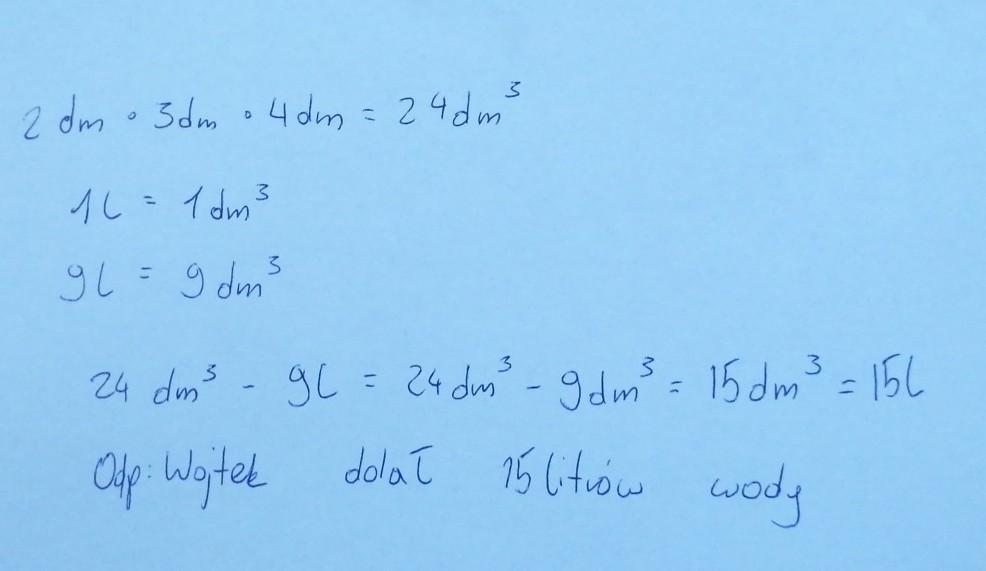 2 dm · 3dm · 4dm = 24dm³
1l = 1dm³
9l = 9dm³
24 dm³ - 9l = 24dm³ - 9dm³ = 15dm³ = 15l
Odp: Wojtek dolał 15 litrów wody